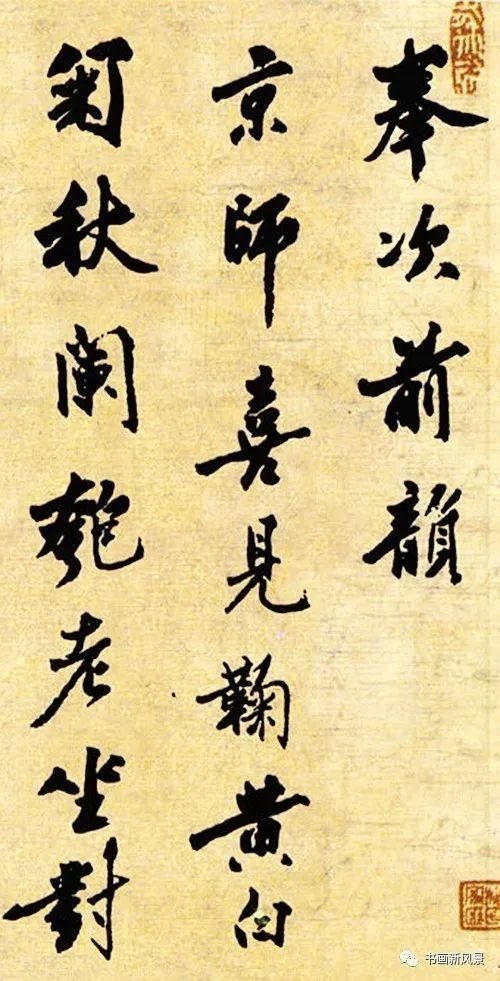 奉次前韻
京師喜見鞠黄白
秋闌匏老坐對
书画新风景